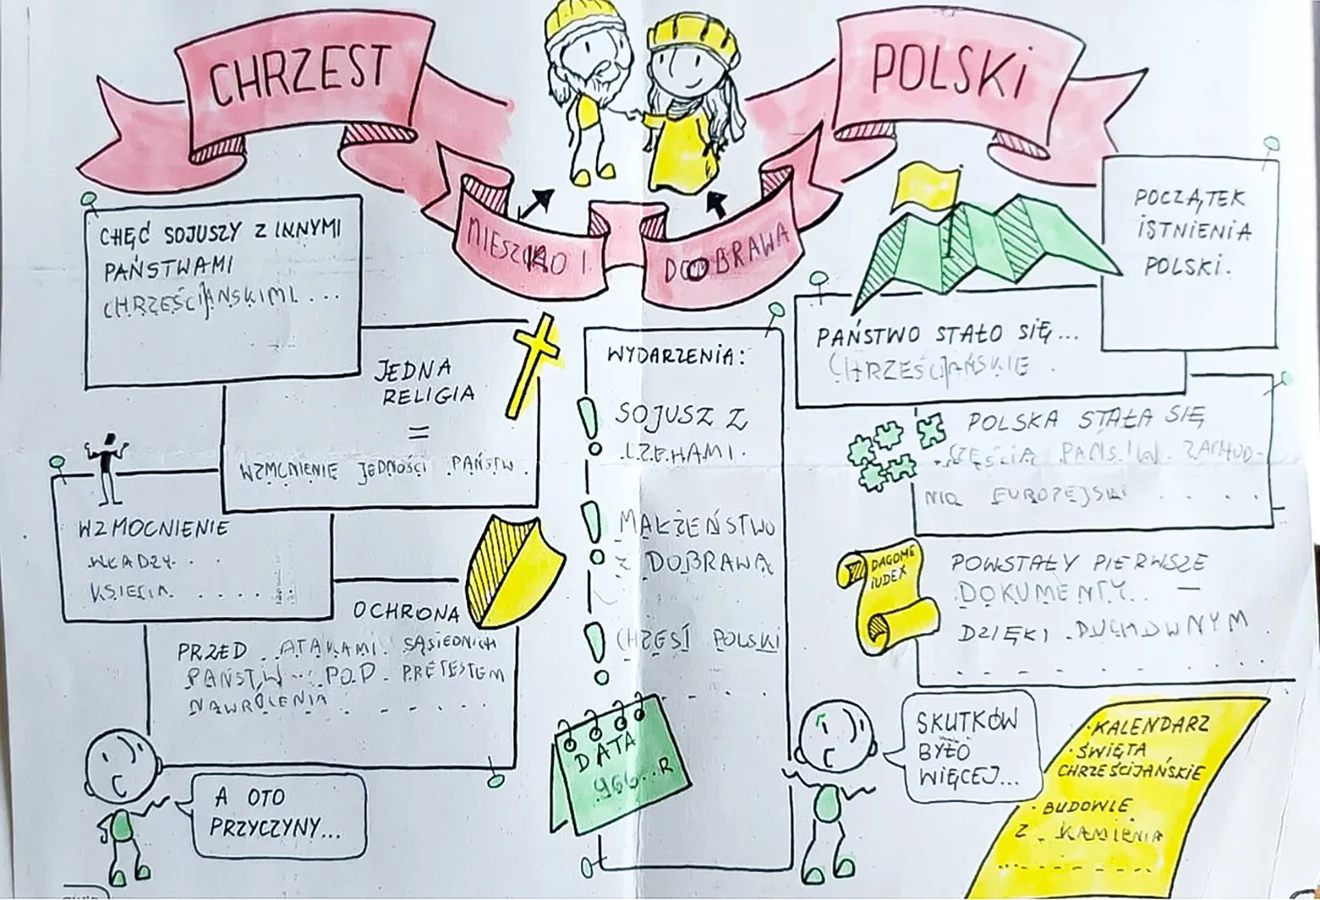 CHRZEST
POLSKI
MIESZKO I
DOBRAWA
CHĘĆ SOJUSZY Z INNYMI
PAŃSTWAMI
CHRZEŚCIJAŃSKIMI ...
JEDNA
RELIGIA
=
WZMCNIENIE JEDNOŚCI PAŃSTW.
WZMOCNIENIE
WŁADZY
KSIĘCIA
OCHRONA
PRZED ATAKAMI SĄSIEDNICH
PAŃSTW POD PRETESTEM
NAWRÓCENIA
A OTO
PRZYCZYNY...
WYDARZENIA:
SOJUSZ Z
CZEHAMI.
MAŁŻEŃSTWO
Z DOBRAWĄ
CHRZEST POLSKI
DATA
966..R
POCZĄTEK
ISTNIENIA
POLSKI.
PAŃSTWO STAŁO SIĘ...
CHRZEŚCIJAŃSKIE
POLSKA STAŁA SIĘ
CZĘŚCIĄ PAŃSTW ZACHOD-
NIO EUROPEJSKI
DAGOME
IUDEX
POWSTAŁY PIERWSZE
DOKUMENTY.. —
DZIĘKI DUCHOWNYM
SKUTKÓW
BYŁO
WIĘCEJ...
· KALENDARZ
· ŚWIĘTA
CHRZEŚCIJAŃSKIE
· BUDOWLE
Z KAMIENIA